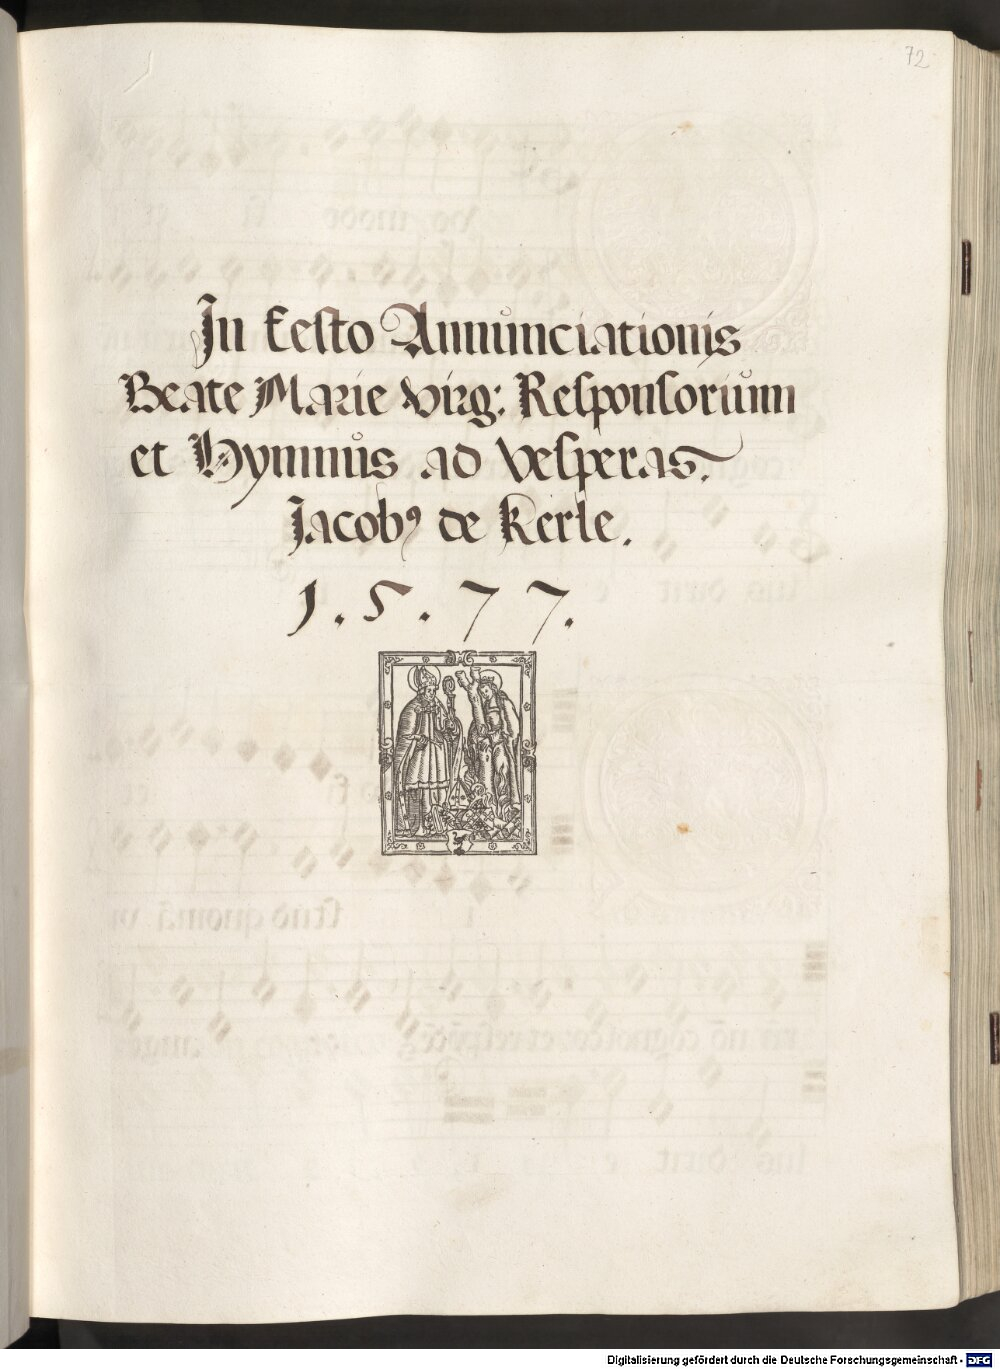 72
In Festo Annunciationis
Beate Marie Virg: Responsorium
et Hymnus ad Vesperas.
Jacobꝰ de Kerle.
1.5.77.
Digitalisierung gefördert durch die Deutsche Forschungsgemeinschaft - DFG